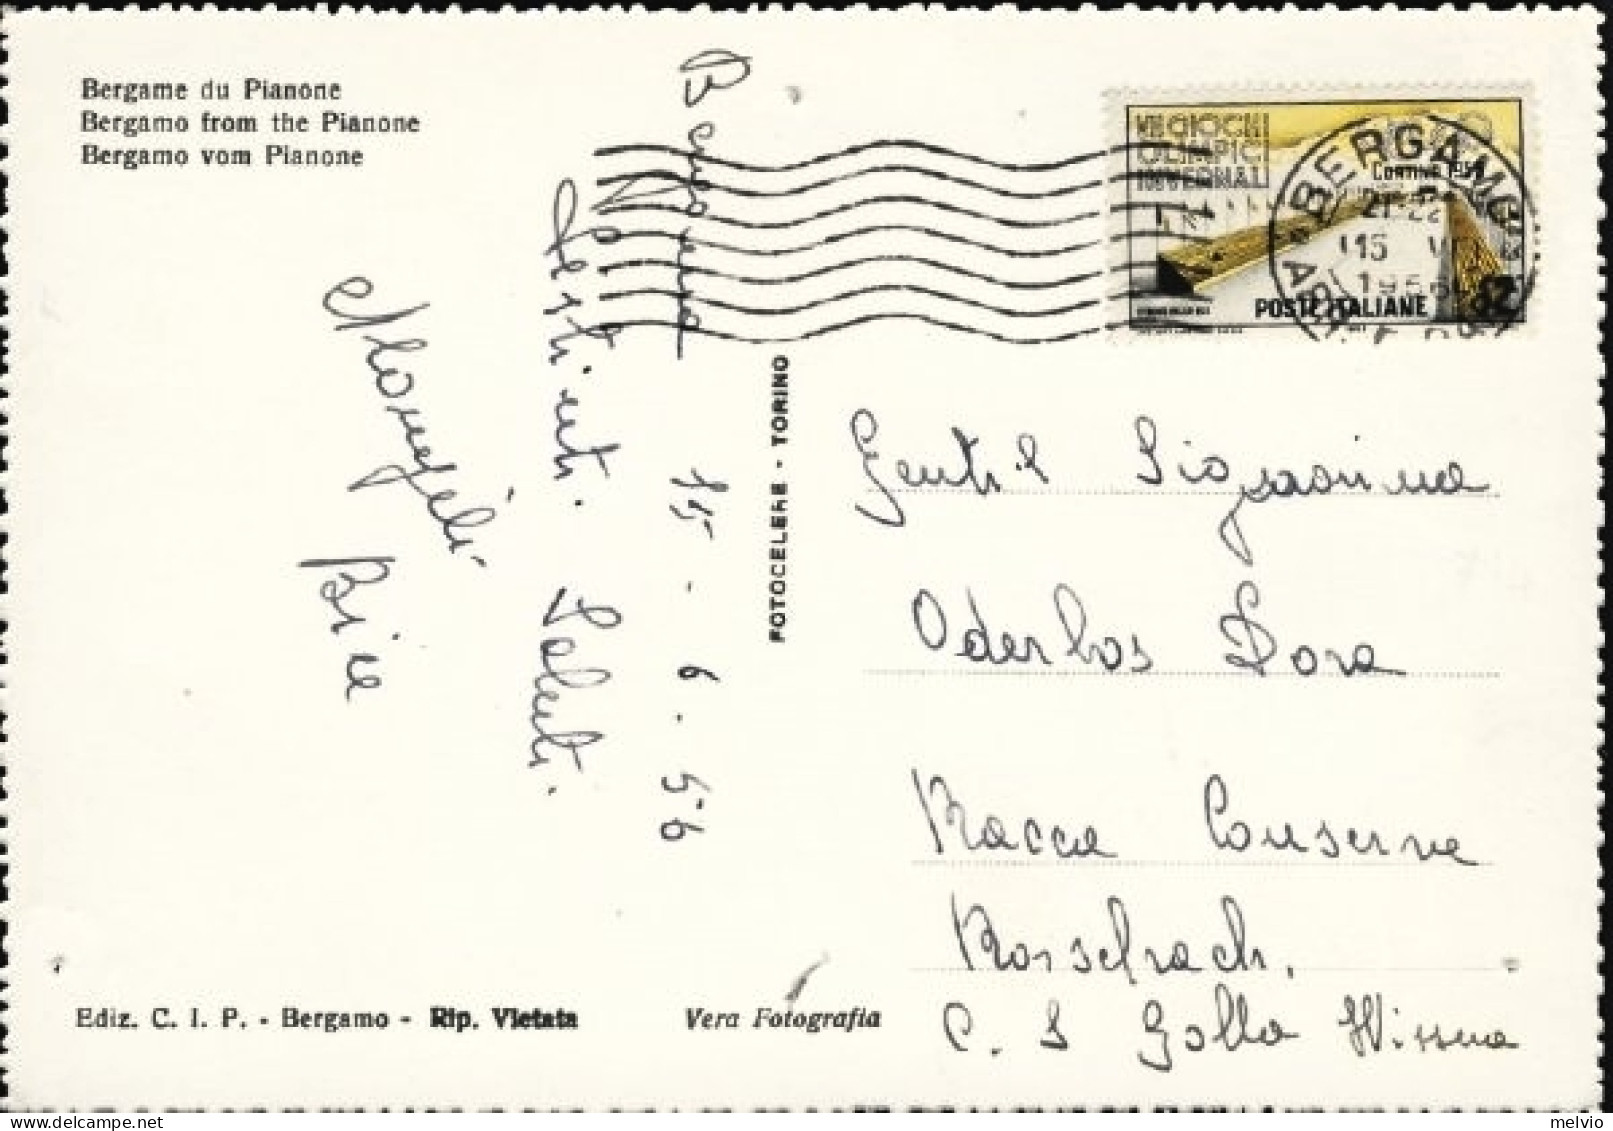 Bergame du Pianone
Bergamo from the Pianone
Bergamo vom Pianone
VII GIOCHI
OLIMPICI
INVERNALI
CORTINA 1956
POSTE ITALIANE
BERGAMO
21-22
15 VI
1956
15 - 6 - 56
Saluti.
Bice
FOTOCELERE - TORINO
Gentil Signorina
Oderbos Dora
Rocco Conserve
Rorschach.
C. S Galla
Ediz. C. I. P. - Bergamo - Rip. Vietata
Vera Fotografia
melvio